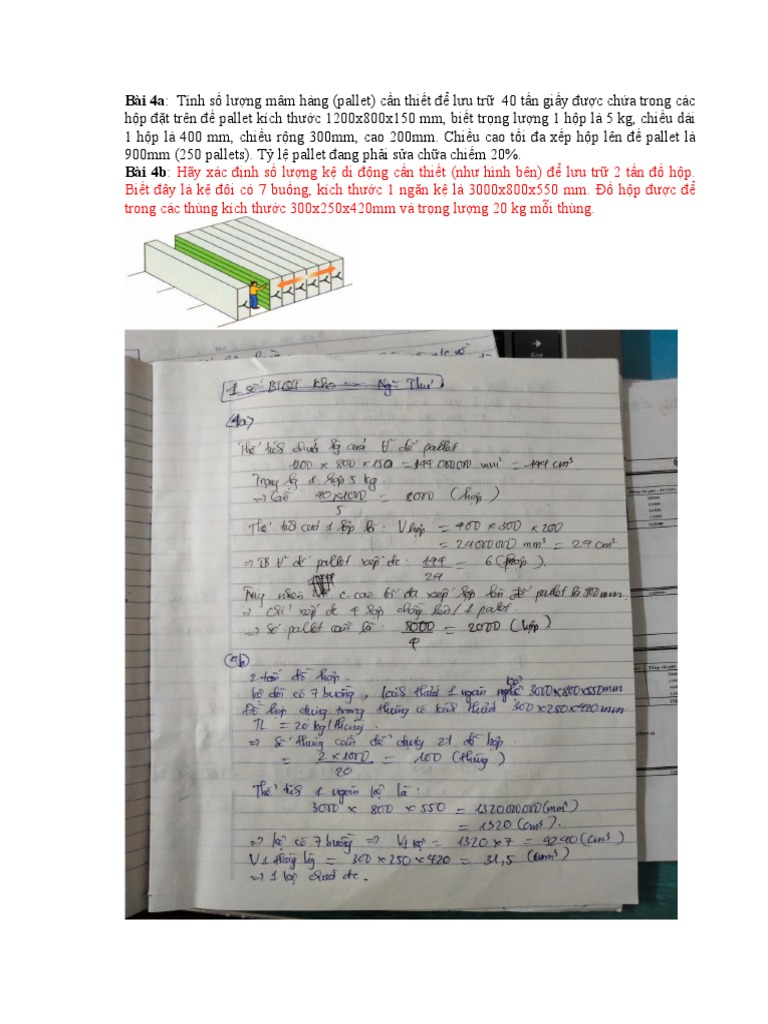 Bài 4a: Tính số lượng mâm hàng (pallet) cần thiết để lưu trữ 40 tấn giấy được chứa trong các
hộp đặt trên đế pallet kích thước 1200x800x150 mm, biết trọng lượng 1 hộp là 5 kg, chiều dài
1 hộp là 400 mm, chiều rộng 300mm, cao 200mm. Chiều cao tối đa xếp hộp lên đế pallet là
900mm (250 pallets). Tỷ lệ pallet đang phải sửa chữa chiếm 20%.
Bài 4b: Hãy xác định số lượng kệ di động cần thiết (như hình bên) để lưu trữ 2 tấn đồ hộp.
Biết đây là kệ đôi có 7 buồng, kích thước 1 ngăn kệ là 3000x800x550 mm. Đồ hộp được để
trong các thùng kích thước 300x250x420mm và trọng lượng 20 kg mỗi thùng.
End
1 số BTQT kho Thư
4a)
đế pallet
1200 × 800 × 150 = 144 000 000 mm³ = 144 cm³
Trọng lg 1 hộp 5 kg
⇒ Cần 40×1000/5 = 8000 (hộp)
Thể tích của 1 hộp là: V hộp = 400 × 300 × 200
= 24 000 000 mm³ = 24 cm³
đế pallet xếp đc: 144/24 = 6 (hộp).
c cao tối đa xếp hộp lên đế pallet là 900mm.
⇒ chỉ xếp đc 4 hộp chồng lên/1 pallet
⇒ Số pallet cần là: 8000/4 = 2000 (hộp)
4b)
2 tấn đồ hộp.
kệ đôi có 7 buồng, kích thước 1 ngăn kệ 3000x800x550mm
Đồ hộp đựng trong thùng có kích thước 300x250x420mm
TL = 20 kg/thùng.
⇒ Số thùng cần để đựng 2t đồ hộp
= 2 × 1000/20 = 100 (thùng)
Thể tích 1 ngăn kệ là:
3000 × 800 × 550 = 1320 000 000 (mm³)
= 1320 (cm³).
⇒ kệ có 7 buồng ⇒ V1 kệ = 1320 × 7 = 9240 (cm³)
V 1 thùng = 300 × 250 × 420 = 31,5 (cm³)
⇒ 1 kệ chứa đc.